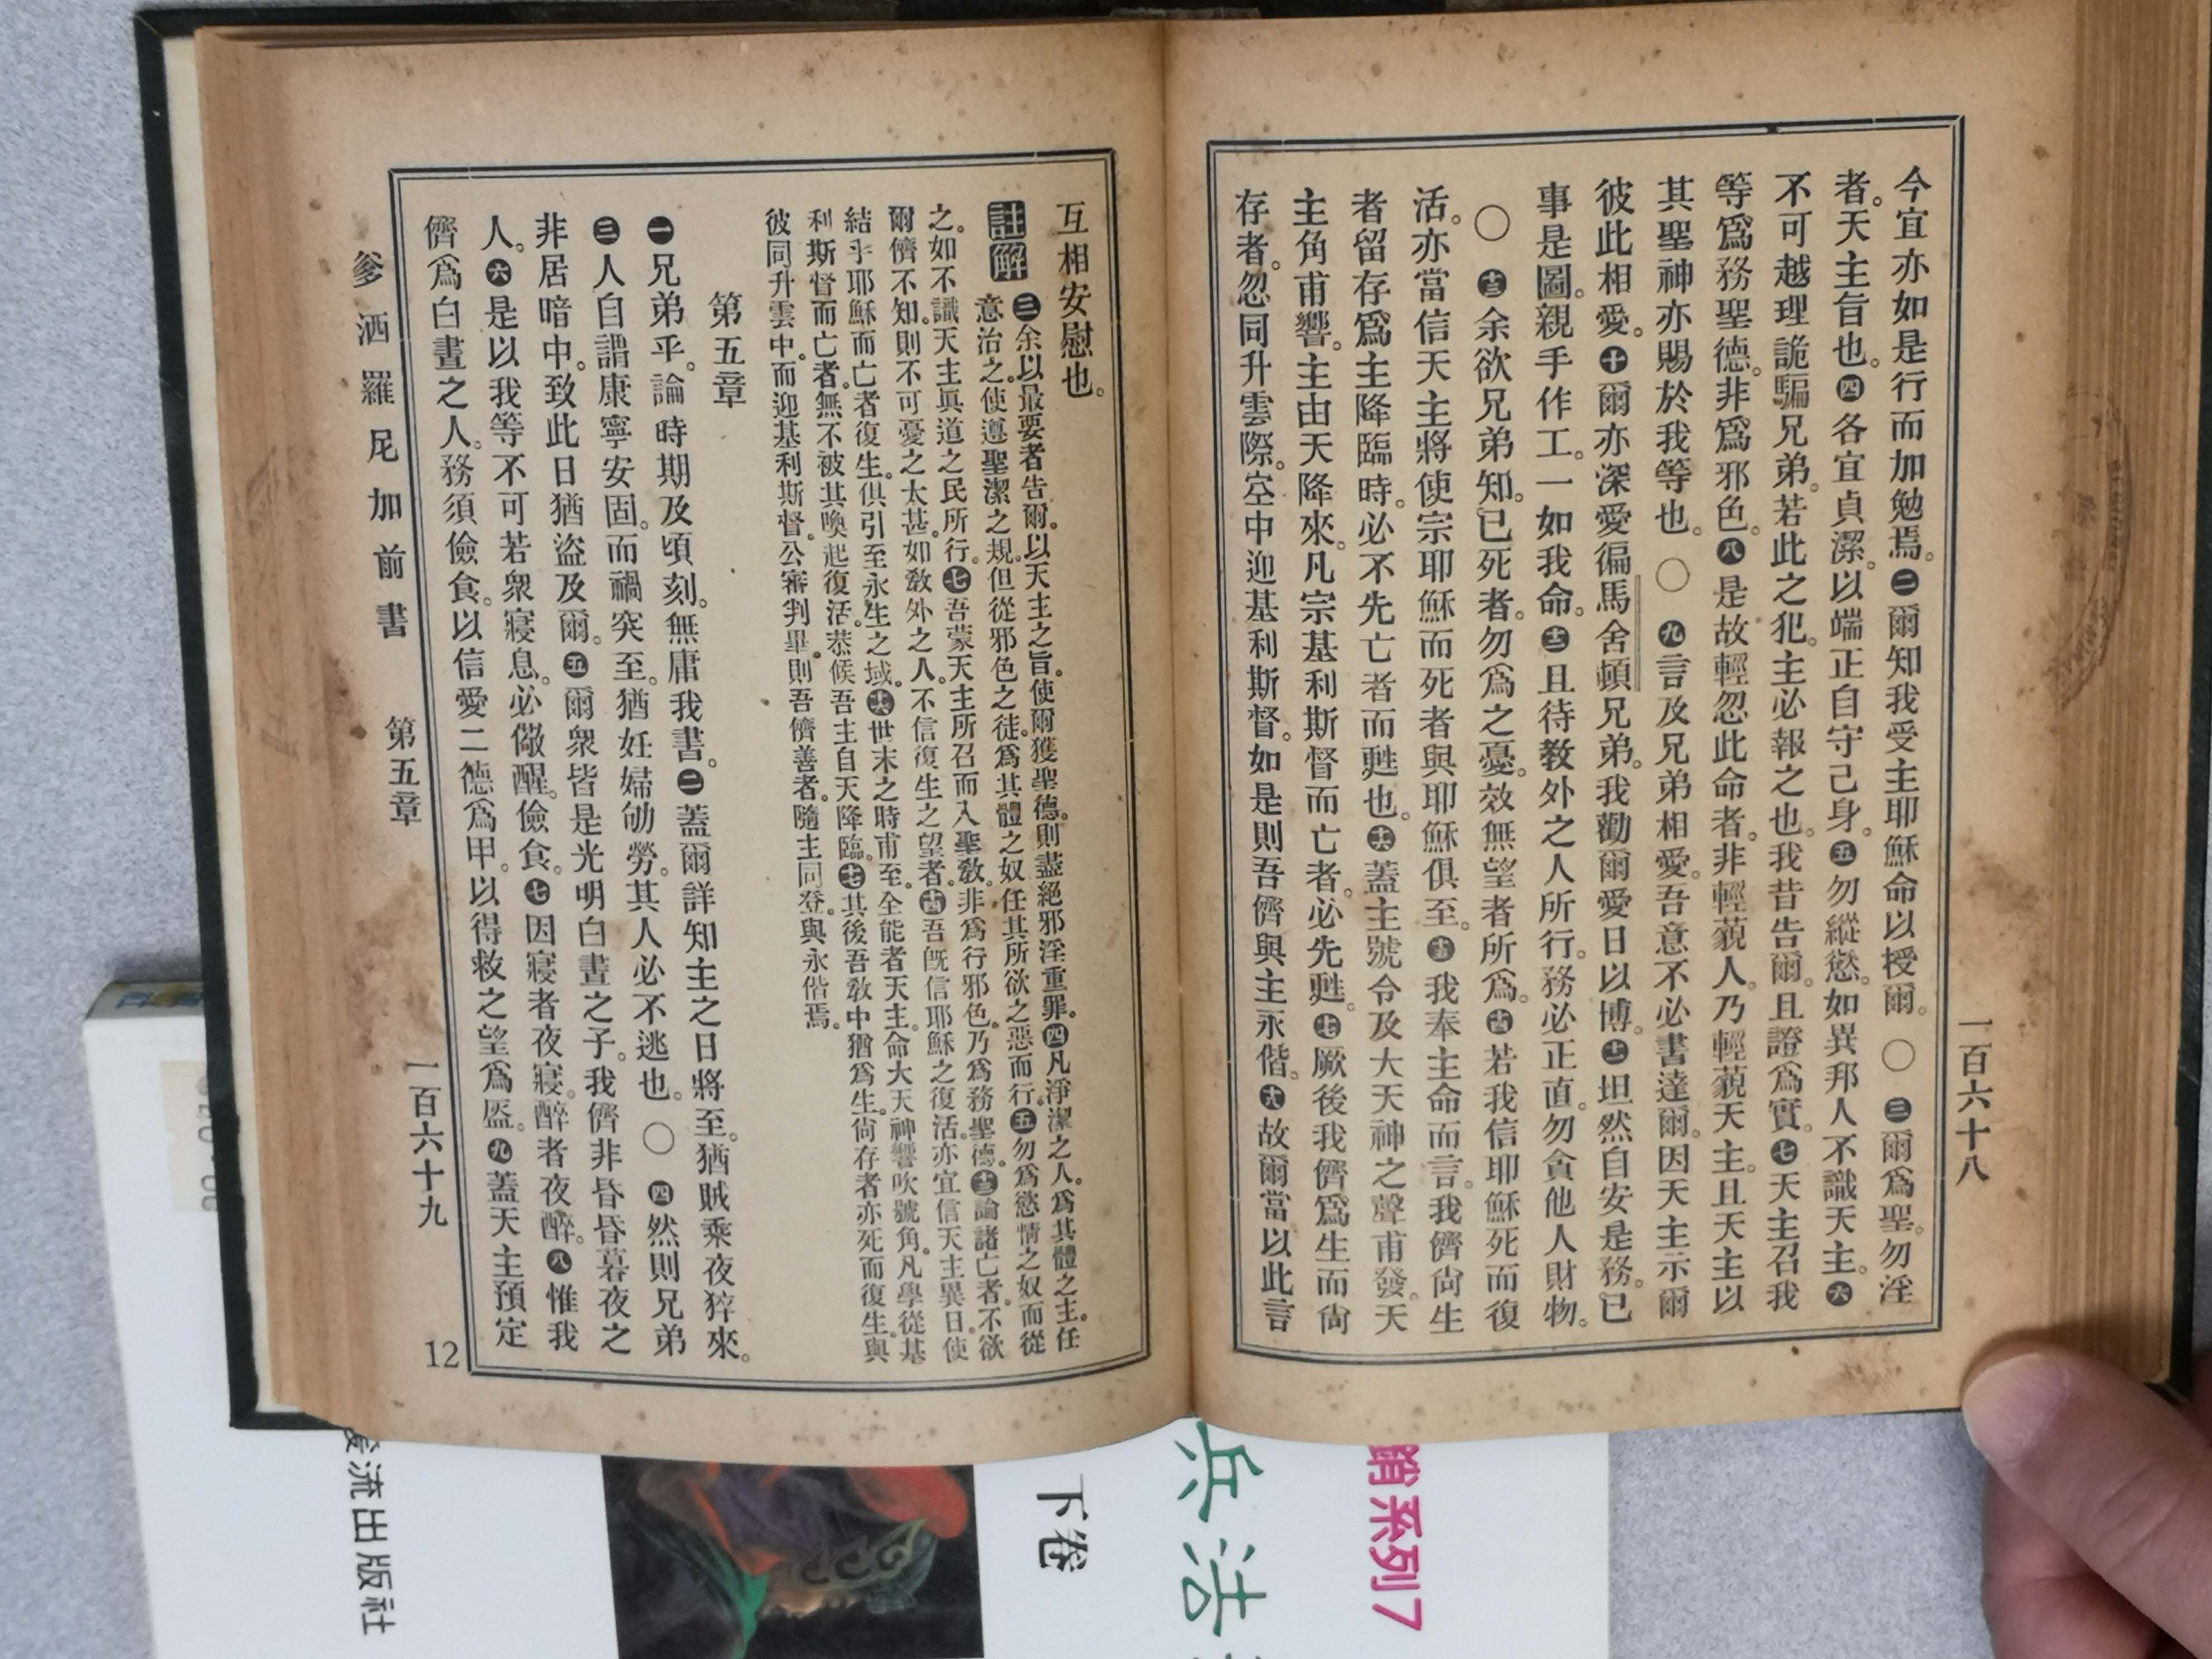 一百六十八
今宜亦如是行而加勉焉。㊁爾知我受主耶穌命以授爾。〇㊂爾爲聖。勿淫
者。天主旨也。㊃各宜貞潔。以端正自守己身。㊄勿縱慾。如異邦人不識天主。㊅
不可越理詭騙兄弟。若此之犯。主必報之也。我昔告爾。且證爲實。㊆天主召我
等爲務聖德。非爲邪色。㊇是故輕忽此命者。非輕藐人。乃輕藐天主。且天主以
其聖神亦賜於我等也。〇㊈言及兄弟相愛。吾意不必書達爾。因天主示爾
彼此相愛。㊉爾亦深愛徧馬舍頓兄弟。我勸爾愛日以博。⓫坦然自安是務。已
事是圖。親手作工。一如我命。⓬且待教外之人所行。務必正直。勿貪他人財物。
〇⓭余欲兄弟知。已死者。勿爲之憂。效無望者所爲。⓮若我信耶穌死而復
活。亦當信天主將使宗耶穌而死者與耶穌俱至。⓯我奉主命而言。我儕尙生
者留存爲主降臨時。必不先亡者而甦也。⓰蓋主號令及大天神之聲甫發。天
主角甫響。主由天降來。凡宗基利斯督而亡者。必先甦。⓱厥後我儕爲生而尙
存者。忽同升雲際。空中迎基利斯督。如是則吾儕與主永偕。⓲故爾當以此言
互相安慰也。
註解 ㊂余以最要者告爾。以天主之旨。使爾獲聖德。則盡絕邪淫重罪。㊃凡淨潔之人。爲其體之主。任
意治之。使遵聖潔之規。但從邪色之徒。爲其體之奴。任其所欲之惡而行。㊄勿爲慾情之奴而從
之。如不識天主眞道之民所行。㊆吾蒙天主所召而入聖敎。非爲行邪色。乃爲務聖德。⓭論諸亡者。不欲
爾儕不知。則不可憂之太甚。如敎外之人。不信復生之望者。⓮吾旣信耶穌之復活。亦宜信天主異日。使
結乎耶穌而亡者復生。俱引至永生之域。⓰世末之時甫至。全能者天主。命大天神響吹號角。凡學從基
利斯督而亡者。無不被其喚起復活。恭候吾主自天降臨。⓱其後吾敎中猶爲生。尙存者亦死而復生。與
彼同升雲中。而迎基利斯督。公審判畢。則吾儕善者。隨主同登。與永偕焉。
第五章
㊀兄弟乎。論時期及頃刻。無庸我書。㊁蓋爾詳知主之日將至。猶賊乘夜猝來。
㊂人自謂康寧安固。而禍突至。猶妊婦劬勞。其人必不逃也。〇㊃然則兄弟
非居暗中。致此日猶盜及爾。㊄爾衆皆是光明白晝之子。我儕非昏昏暮夜之
人。㊅是以我等不可若衆寢息。必儆醒。儉食。㊆因寢者夜寢。醉者夜醉。㊇惟我
儕爲白晝之人。務須儉食。以信愛二德爲甲。以得救之望爲盔。㊈蓋天主預定
爹洒羅尼加前書 第五章 一百六十九
12
流出版社
下卷
兵法
系列7